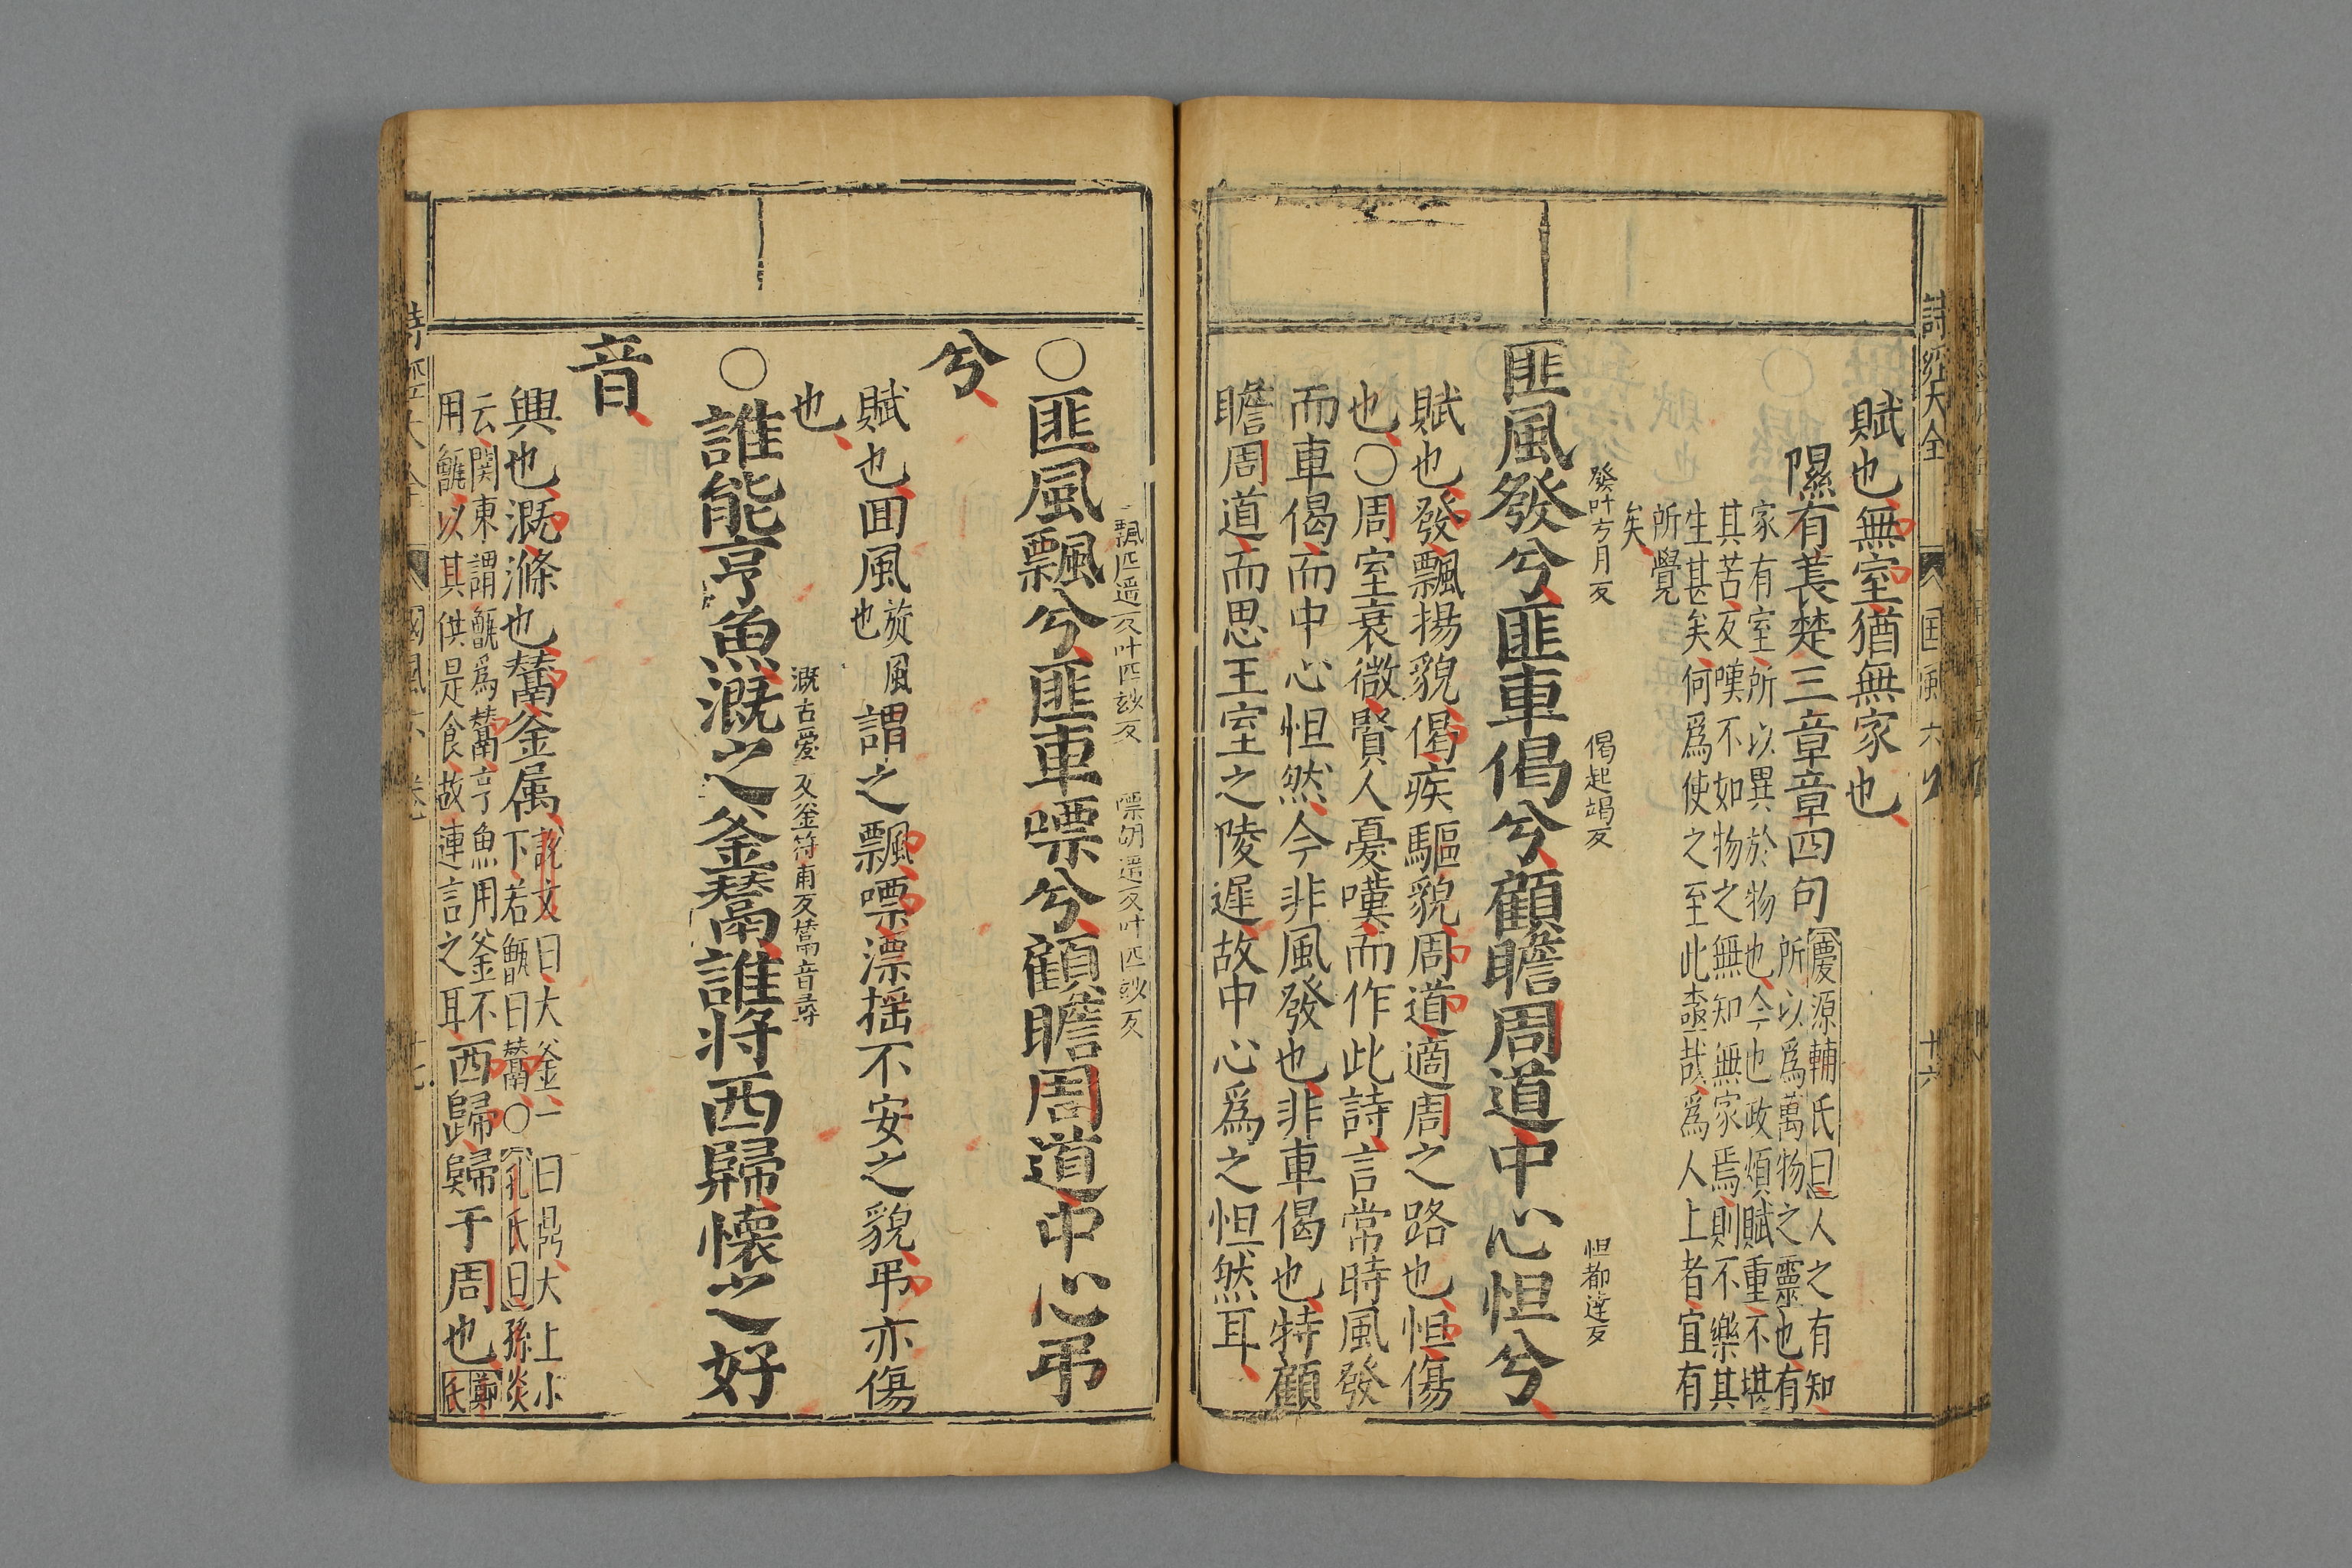 詩經大全
囯風六
十六
賦也無室猶無家也
隰有萇楚三章章四句
慶源輔氏曰人之有知
所以爲萬物之靈也有
家有室所以異於物也今也政煩賦重不堪
其苦反嘆不如物之無知無家焉則不樂其
生甚矣何爲使之至此極哉爲人上者宜有
所覺
矣
發叶方月反
偈起竭反
怛都達反
匪風發兮匪車偈兮顧瞻周道中心怛兮
賦也發飄揚貌偈疾驅貌周道適周之路也怛傷
也○周室衰微賢人憂嘆而作此詩言常時風發
而車偈而中心怛然今非風發也非車偈也特顧
瞻周道而思王室之陵遲故中心爲之怛然耳
飄匹遥反叶匹妙反
嘌匀遥反叶匹妙反
○匪風飄兮匪車嘌兮顧瞻周道中心弔
兮
賦也囬風旋風也謂之飄嘌漂揺不安之貌弔亦傷
也
溉古愛反釜符甫反鬵音尋
○誰能亨魚溉之釜鬵誰将西歸懐之好
音
興也溉滌也鬵釜属
說文曰大釜一曰鼎大上小
下若甑曰鬵○孔氏曰孫炎
云関東謂甑爲鬵亨魚用釜不
用甑以其供是食故連言之耳
西歸歸于周也
鄭
氏
國風六
十七